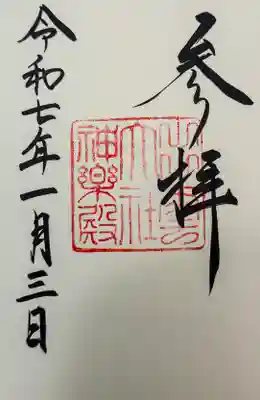 参拝
出雲
大社
神樂殿
令和七年一月三日